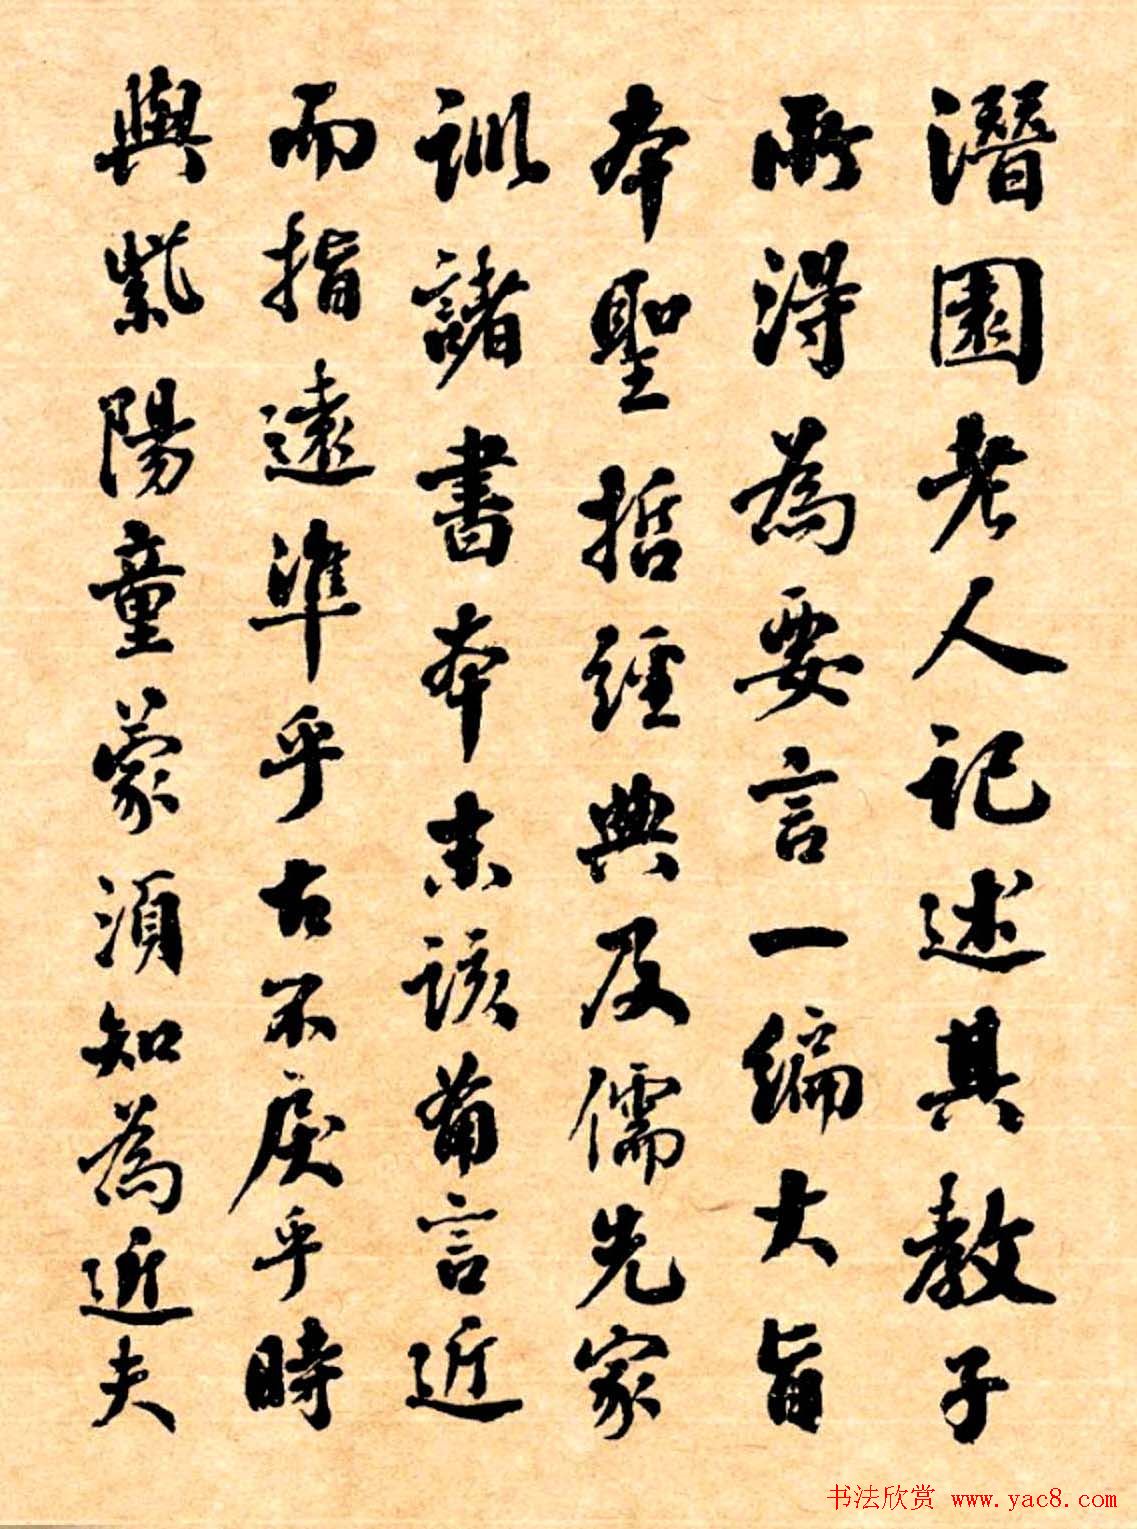 潛園老人記述其教子
所得為要言一編大旨
本聖哲經典及儒先家
訓諸書本末該備言近
而指遠準乎古不戾乎時
與紫陽童蒙須知為近夫
书法欣赏 www.yac8.com